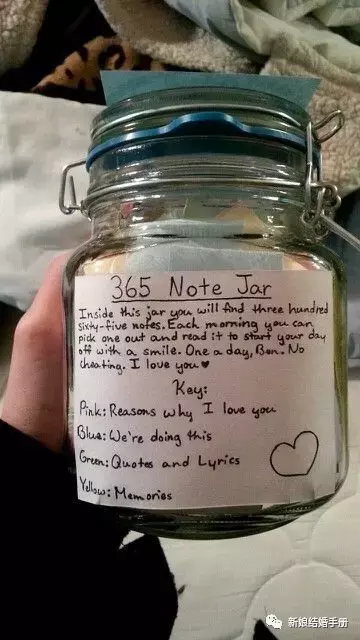 365 Note Jar
Inside this jar you will find three hundred
sixty-five notes. Each morning you can
pick one out and read it to start your day
off with a smile. One a day, Ben. No
cheating. I love you♥
Key:
Pink: Reasons why I love you
Blue: We're doing this
Green: Quotes and Lyrics
Yellow: Memories
新娘结婚手册